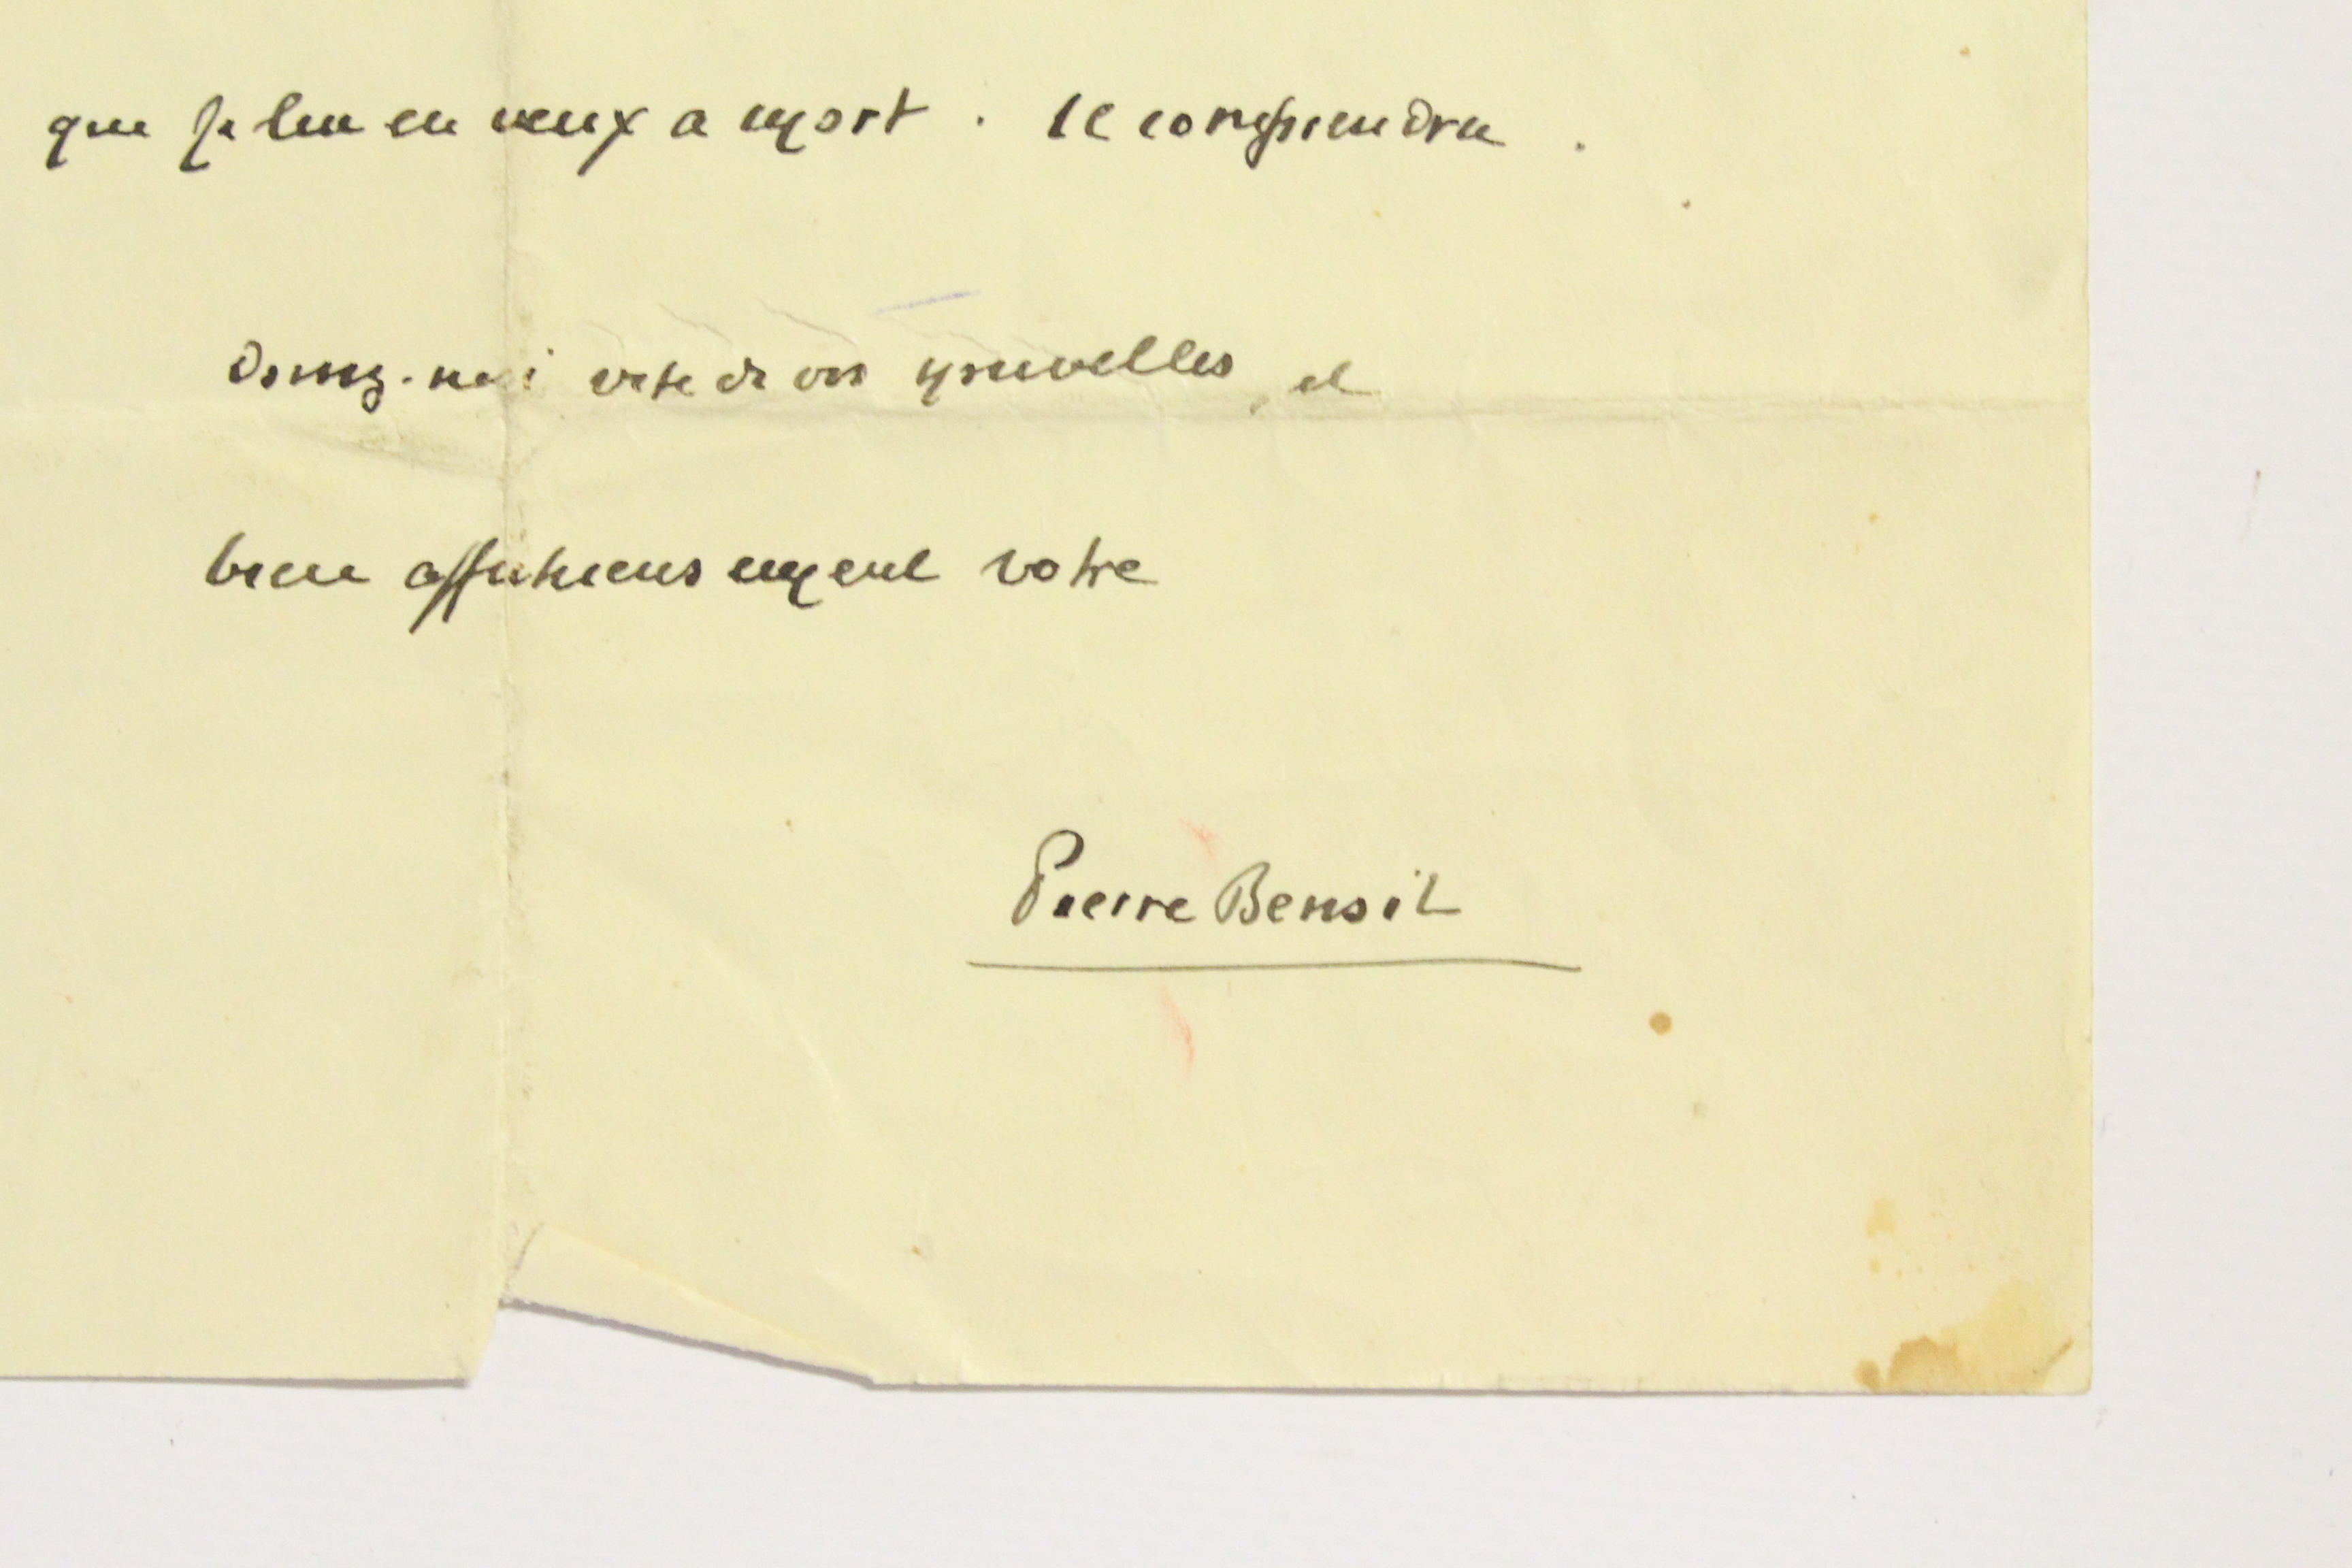 que je lui en veux a mort. Il comprendra.
Donnez-moi vite de vos nouvelles, et
bien affectueusement votre
Pierre Benoit